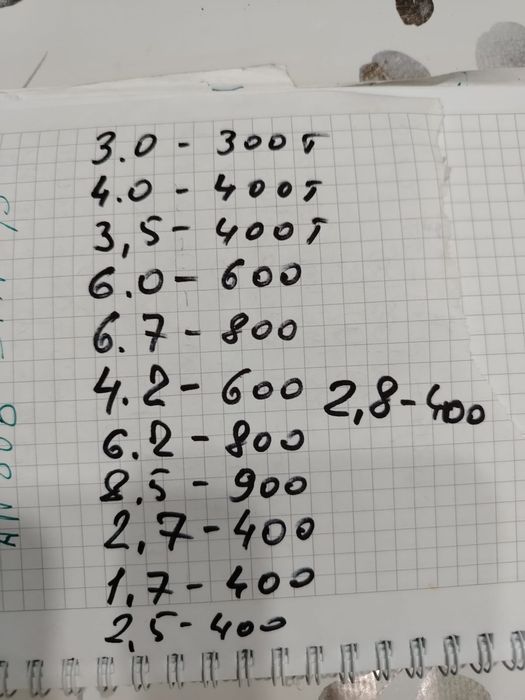 3.0 - 300т
4.0 - 400т
3,5 - 400т
6.0 - 600
6.7 - 800
4.2 - 600 2,8 - 400
6.2 - 800
8.5 - 900
2,7 - 400
1,7 - 400
2,5 - 400